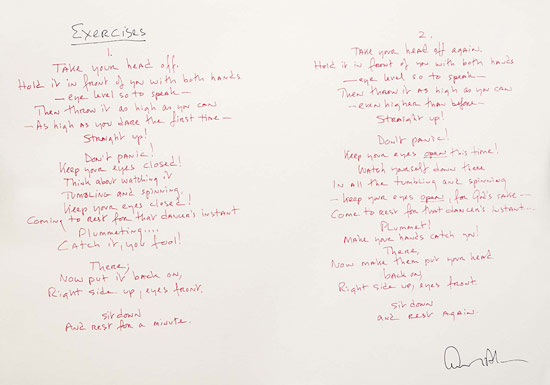 Exercises
1.
Take your head off.
Hold it in front of you with both hands
—eye level so to speak—
Then throw it as high as you can
—As high as you dare the first time—
Straight up!
Don't panic!
Keep your eyes closed!
Think about watching it
Tumbling and spinning.
Keep your eyes closed!
Coming to rest for that dancer's instant
Plummeting....
Catch it, you fool!
There;
Now put it back on,
Right side up, eyes front,
Sit down
And rest for a minute.
2.
Take your head off again.
Hold it in front of you with both hands
—eye level so to speak—
Then throw it as high as you can
—even higher than before—
Straight up!
Don't panic!
Keep your eyes open this time!
Watch yourself down there
In all the tumbling and spinning
—Keep your eyes open, for God's sake—
Come to rest for that dancer's instant...
Plummet!
Make your hands catch you!
There,
Now make them put your head
back on,
Right side up, eyes front.
Sit down
and rest again.